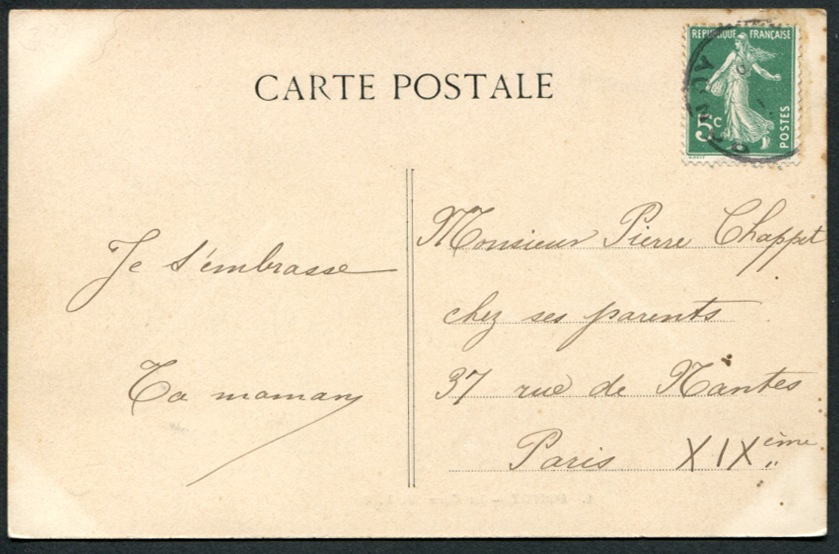 CARTE POSTALE
REPUBLIQUE FRANÇAISE
5c
POSTES
Je t'embrasse
Ta maman
Monsieur Pierre Chappet
chez ses parents
37 rue de Nantes
Paris XIXème